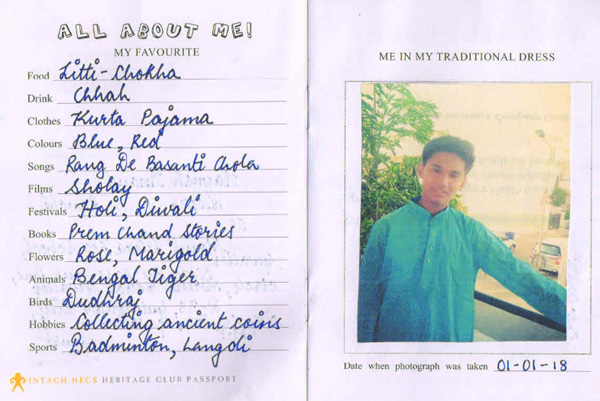 ALL ABOUT ME!
MY FAVOURITE
Food Litti-Chokha
Drink Chhah
Clothes Kurta Pajama
Colours Blue, Red
Songs Rang De Basanti Chola
Films Sholay
Festivals Holi, Diwali
Books Prem Chand Stories
Flowers Rose, Marigold
Animals Bengal Tiger
Birds Dudhraj
Hobbies Collecting ancient coins
Sports Badminton, Langdi
INTACH HECS HERITAGE CLUB PASSPORT
ME IN MY TRADITIONAL DRESS
Date when photograph was taken 01-01-18